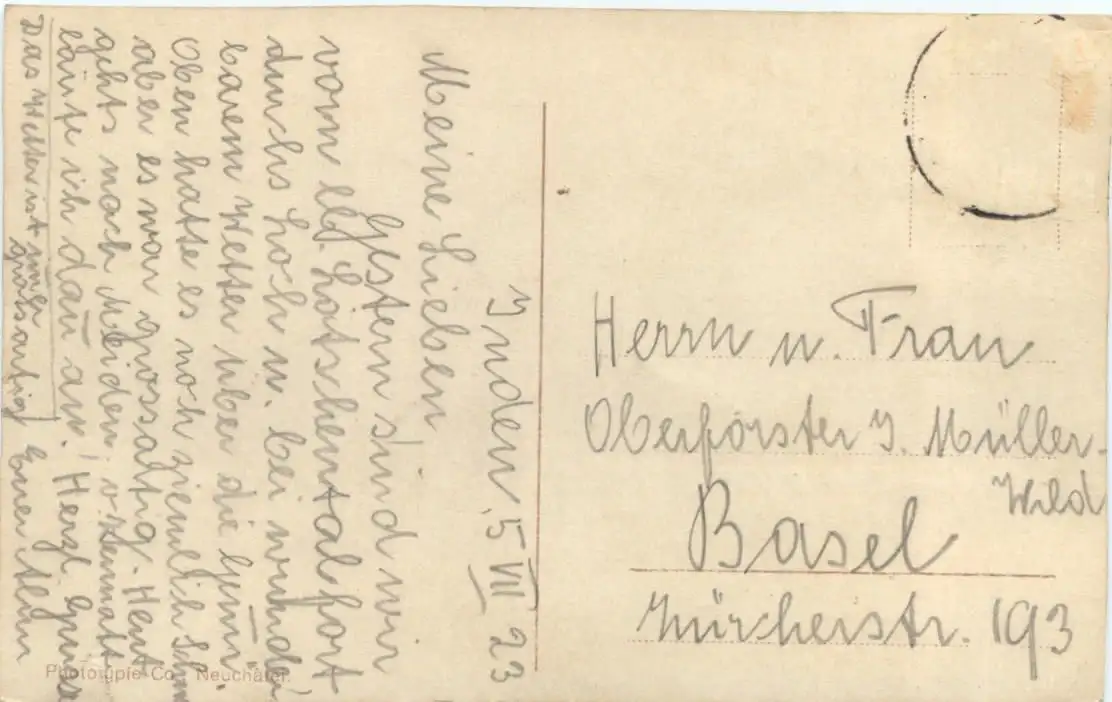 Inden, 5 VII 23
Meine Lieben,
Gestern sind wir
vom lb. Lötschental fort
durchs hoch u. bei wunder
barem Wetter über die Gemmi
Oben hatte es noch ziemlich Schnee
aber es war grossartig. Heut
gehts nach Meiden. v. Zermatt
läute ich dann an! Herzl. Gruss
Das Wetter ist
grossartig
Euer
Herrn u. Frau
Oberförster J. Müller-
Wild
Basel
Zürcherstr. 193
Phototypie Co. Neuchâtel.